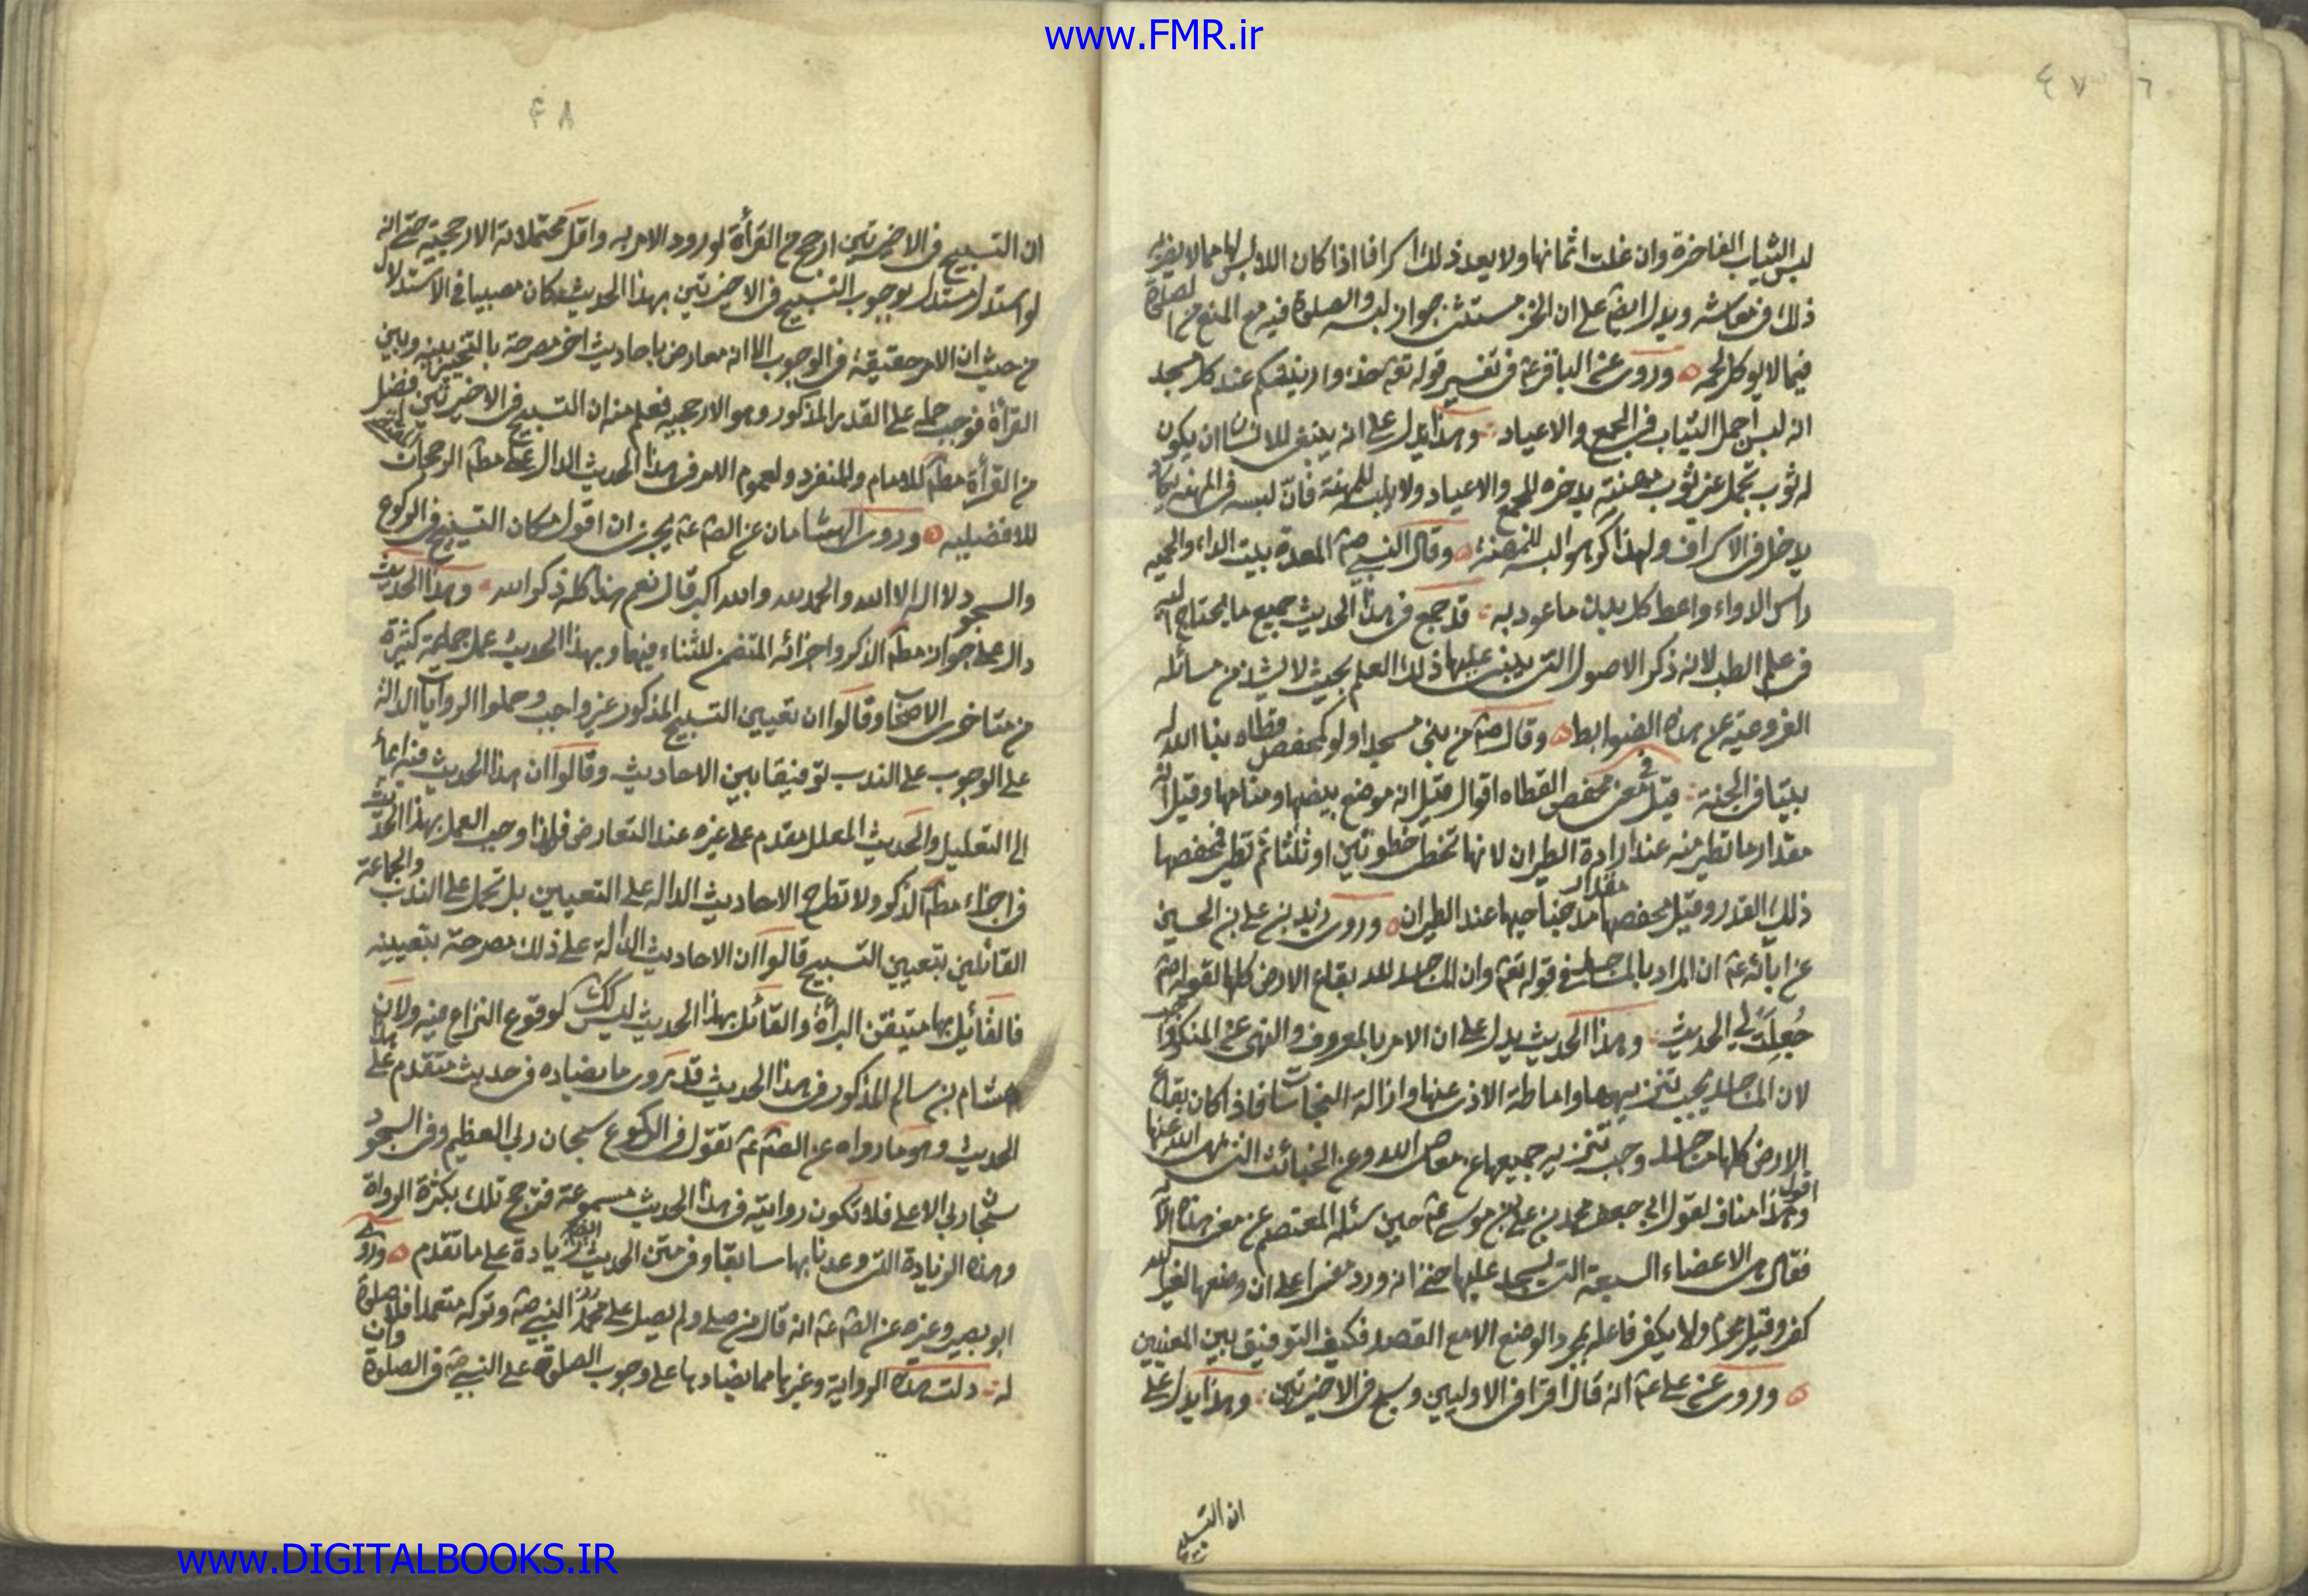 www.FMR.ir
٤٧
لبس الثياب الفاخرة وان غلت اثمانها ولا يعد ذلك اسرافا اذا كان اللابس لها مما لا يضر به
ذلك فى معاشه ويدل ايضا على ان الخز مستثنى جواز لبسه والصلوة فيه مع المنع من الصلوة
فيما لا يوكل لحمه وروى عن الباقر عم فى تفسير قوله تعم خذوا زينتكم عند كل مسجد
انه لبس اجمل الثياب فى الجمع والاعياد وهذا يدل على انه ينبغى للانسان ان يكون
له ثوب تجمل غير ثوب مهنته يدخره للجمع والاعياد ولا يلبسه للمهنة فان لبسه فى المهنه يكاد
يدخل فى الاسراف ولهذا كرهوا لبسه للمهنة وقال النبي صم المعدة بيت الداء والحميه
راس الدواء واعط كل بدن ما عود به قد جمع فى هذا الحديث جميع ما يحتاج اليه
فى علم الطب لانه ذكر الاصول التى يبنى عليها ذلك العلم بحيث لا يشذ من مسائله
الفروعيه عن هذه الضوابط وقال صم من بنى مسجدا ولو كمفحص قطاه بنا الله له
بيتا فى الجنة قيل فى معنى مفحص القطاه اقوال قيل انه موضع بيضها ومنامها وقيل انه
مقدار ما تطير منه عند ارادة الطيران لانها تخطى خطوتين او ثلثا ثم تطير فمفحصها
ذلك القدر وقيل مفحصها مقدار مد جناحيها عند الطيران وروى زيد بن على بن الحسين
عن ابائه عم ان المراد بالمساجد فى قوله تعم وان المساجد لله بقاع الارض كلها لقوله صم
جُعِلَت لي الحديث وهذا الحديث يدل على ان الامر بالمعروف والنهى عن المنكر
لان المساجد يجب تنزيهها واماطة الاذى عنها وازالة النجاسات فاذا كان بقاع
الارض كلها مساجد وجب تنزيه جميعها عن معاصى الله وعن الخبائث التى نهى الله عنها
اقول وهذا مناف لقول ابى جعفر محمد بن على بن موسى عم حين سئله المعتصم عن معنى هذه الآية
فقال هى الاعضاء السبعة التى يسجد عليها حتى انه ورد مفسرا على ان وضعها لغير الله
كفر وقيل محرم ولا يكفر فاعله بمجرد الوضع الا مع القصد فكيف التوفيق بين المعنيين
وروى عن على عم انه قال اقرا فى الاوليين وسبح فى الاخيرتين وهذا يدل على
ان التسبيح
٤٨
ان التسبيح فى الاخيرتين ارجح من القرأة لورود الامر به واقل محتملاته الارجحية حتى انه
لو استدل مستدل بوجوب التسبيح فى الاخيرتين بهذا الحديث لكان مصيبا فى الاستدلال
من حيث ان الامر حقيقة فى الوجوب الا انه معارض باحاديث اخر مصرحة بالتخيير بينه وبين
القرأة فوجب حمله على القدر المذكور وهو الارجحيه فعلم منه ان التسبيح فى الاخيرتين افضل
من القرأة مطم للامام والمنفرد ولعموم الامر فى هذا الحديث الدال على مطم الرجحان
للافضليه وروى الهشامان عن الصم عم يجزى ان اقول مكان التسبيح فى الركوع
والسجود لا اله الا الله والحمد لله والله اكبر قال نعم هذا كله ذكر الله وهذا الحديث
دال على جواز مطم الذكر واجزائه المتضمن للثناء فيهما وبهذا الحديث عمل جماعة كثيرة
من متاخرى الاصحاب وقالوا ان تعيين التسبيح المذكور غير واجب وحملوا الروايات الدالة
على الوجوب على الندب توفيقا بين الاحاديث وقالوا ان هذا الحديث فيه ايماء
الى التعليل والحديث المعلل مقدم على غيره عند التعارض فلهذا وجب العمل بهذا الحديث
فى اجزاء مطم الذكر ولا تطرح الاحاديث الداله على التعيين بل تحمل على الندب والجماعة
القائلين بتعيين التسبيح قالوا ان الاحاديث الدالة على ذلك مصرحة بتعيينه
فالقائل بها متيقن البرأة والقائل بهذا الحديث ليس كذلك لوقوع النزاع فيه ولان
هشام بن سالم المذكور فى هذا الحديث قد روى ما يضاده فى حديث متقدم على هذا
الحديث وهو ما رواه عن الصم عم تقول فى الركوع سبحان ربى العظيم وفى السجود
سبحان ربى الاعلى فلا تكون روايته فى هذا الحديث مسموعة فترجح تلك بكثرة الرواة
وهذه الزيادة التى وعدنا بها سابقا وفى متن الحديث زيادة على ما تقدم وروى
ابو بصير وغيره عن الصم عم انه قال من صلى ولم يصل على محمد النبي صم وتركه متعمدا فلا صلوة
له دلت هذه الرواية وغيرها مما يضادها على وجوب الصلوة على النبي صم فى الصلوة وان
www.DIGITALBOOKS.IR